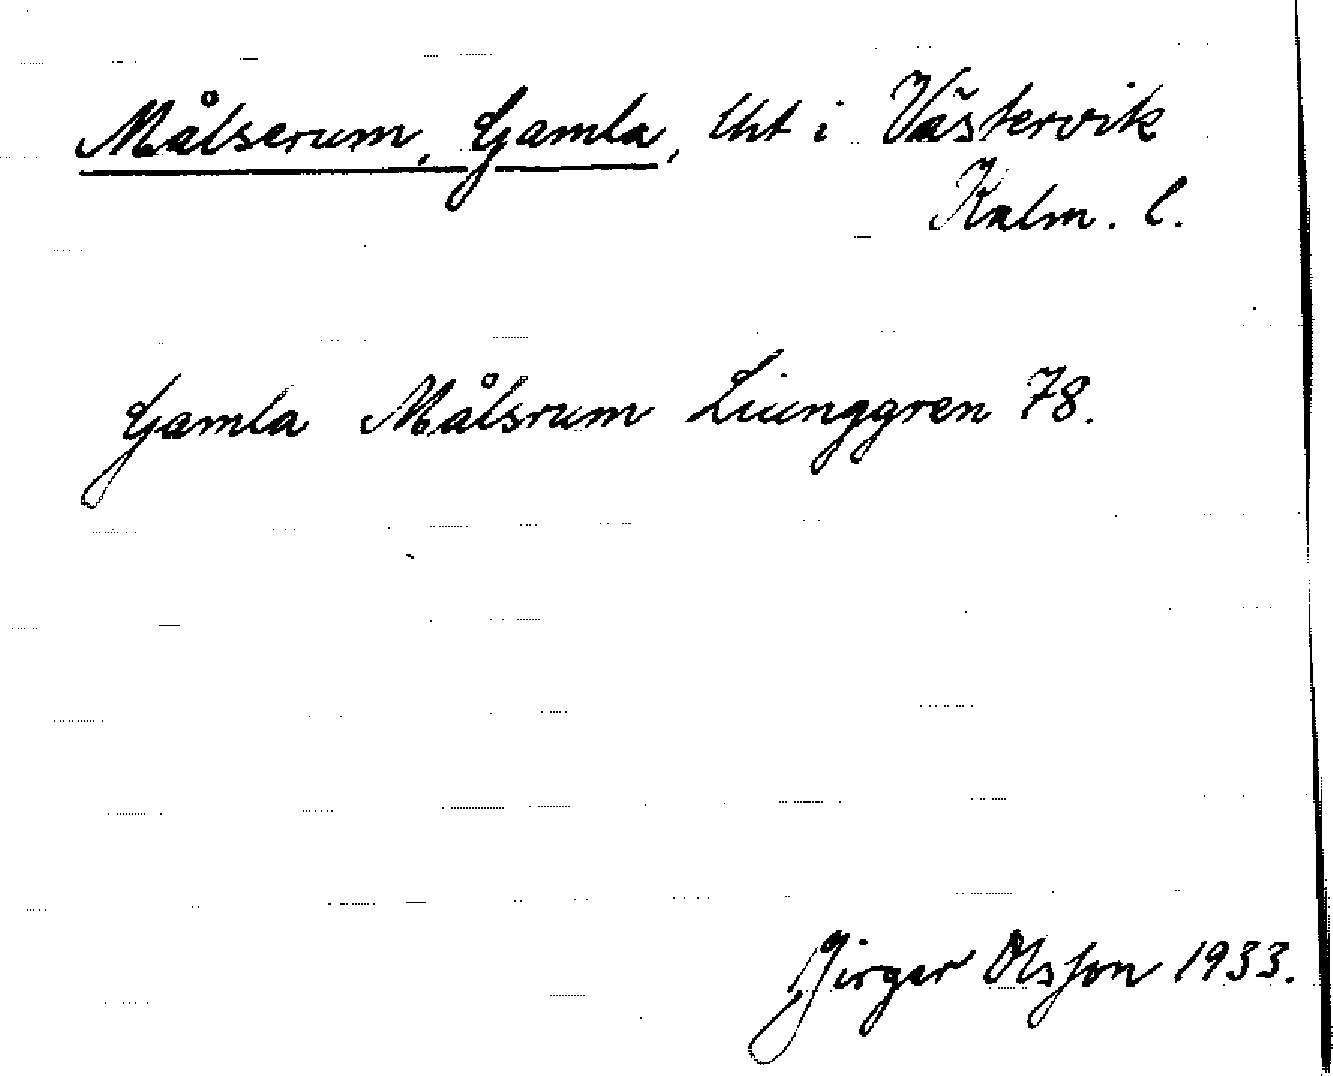 Målserum, Gamla, lht i Västervik
Kalm. l.
Gamla Målsrum Liunggren 78.
Birger Olsson 1933.